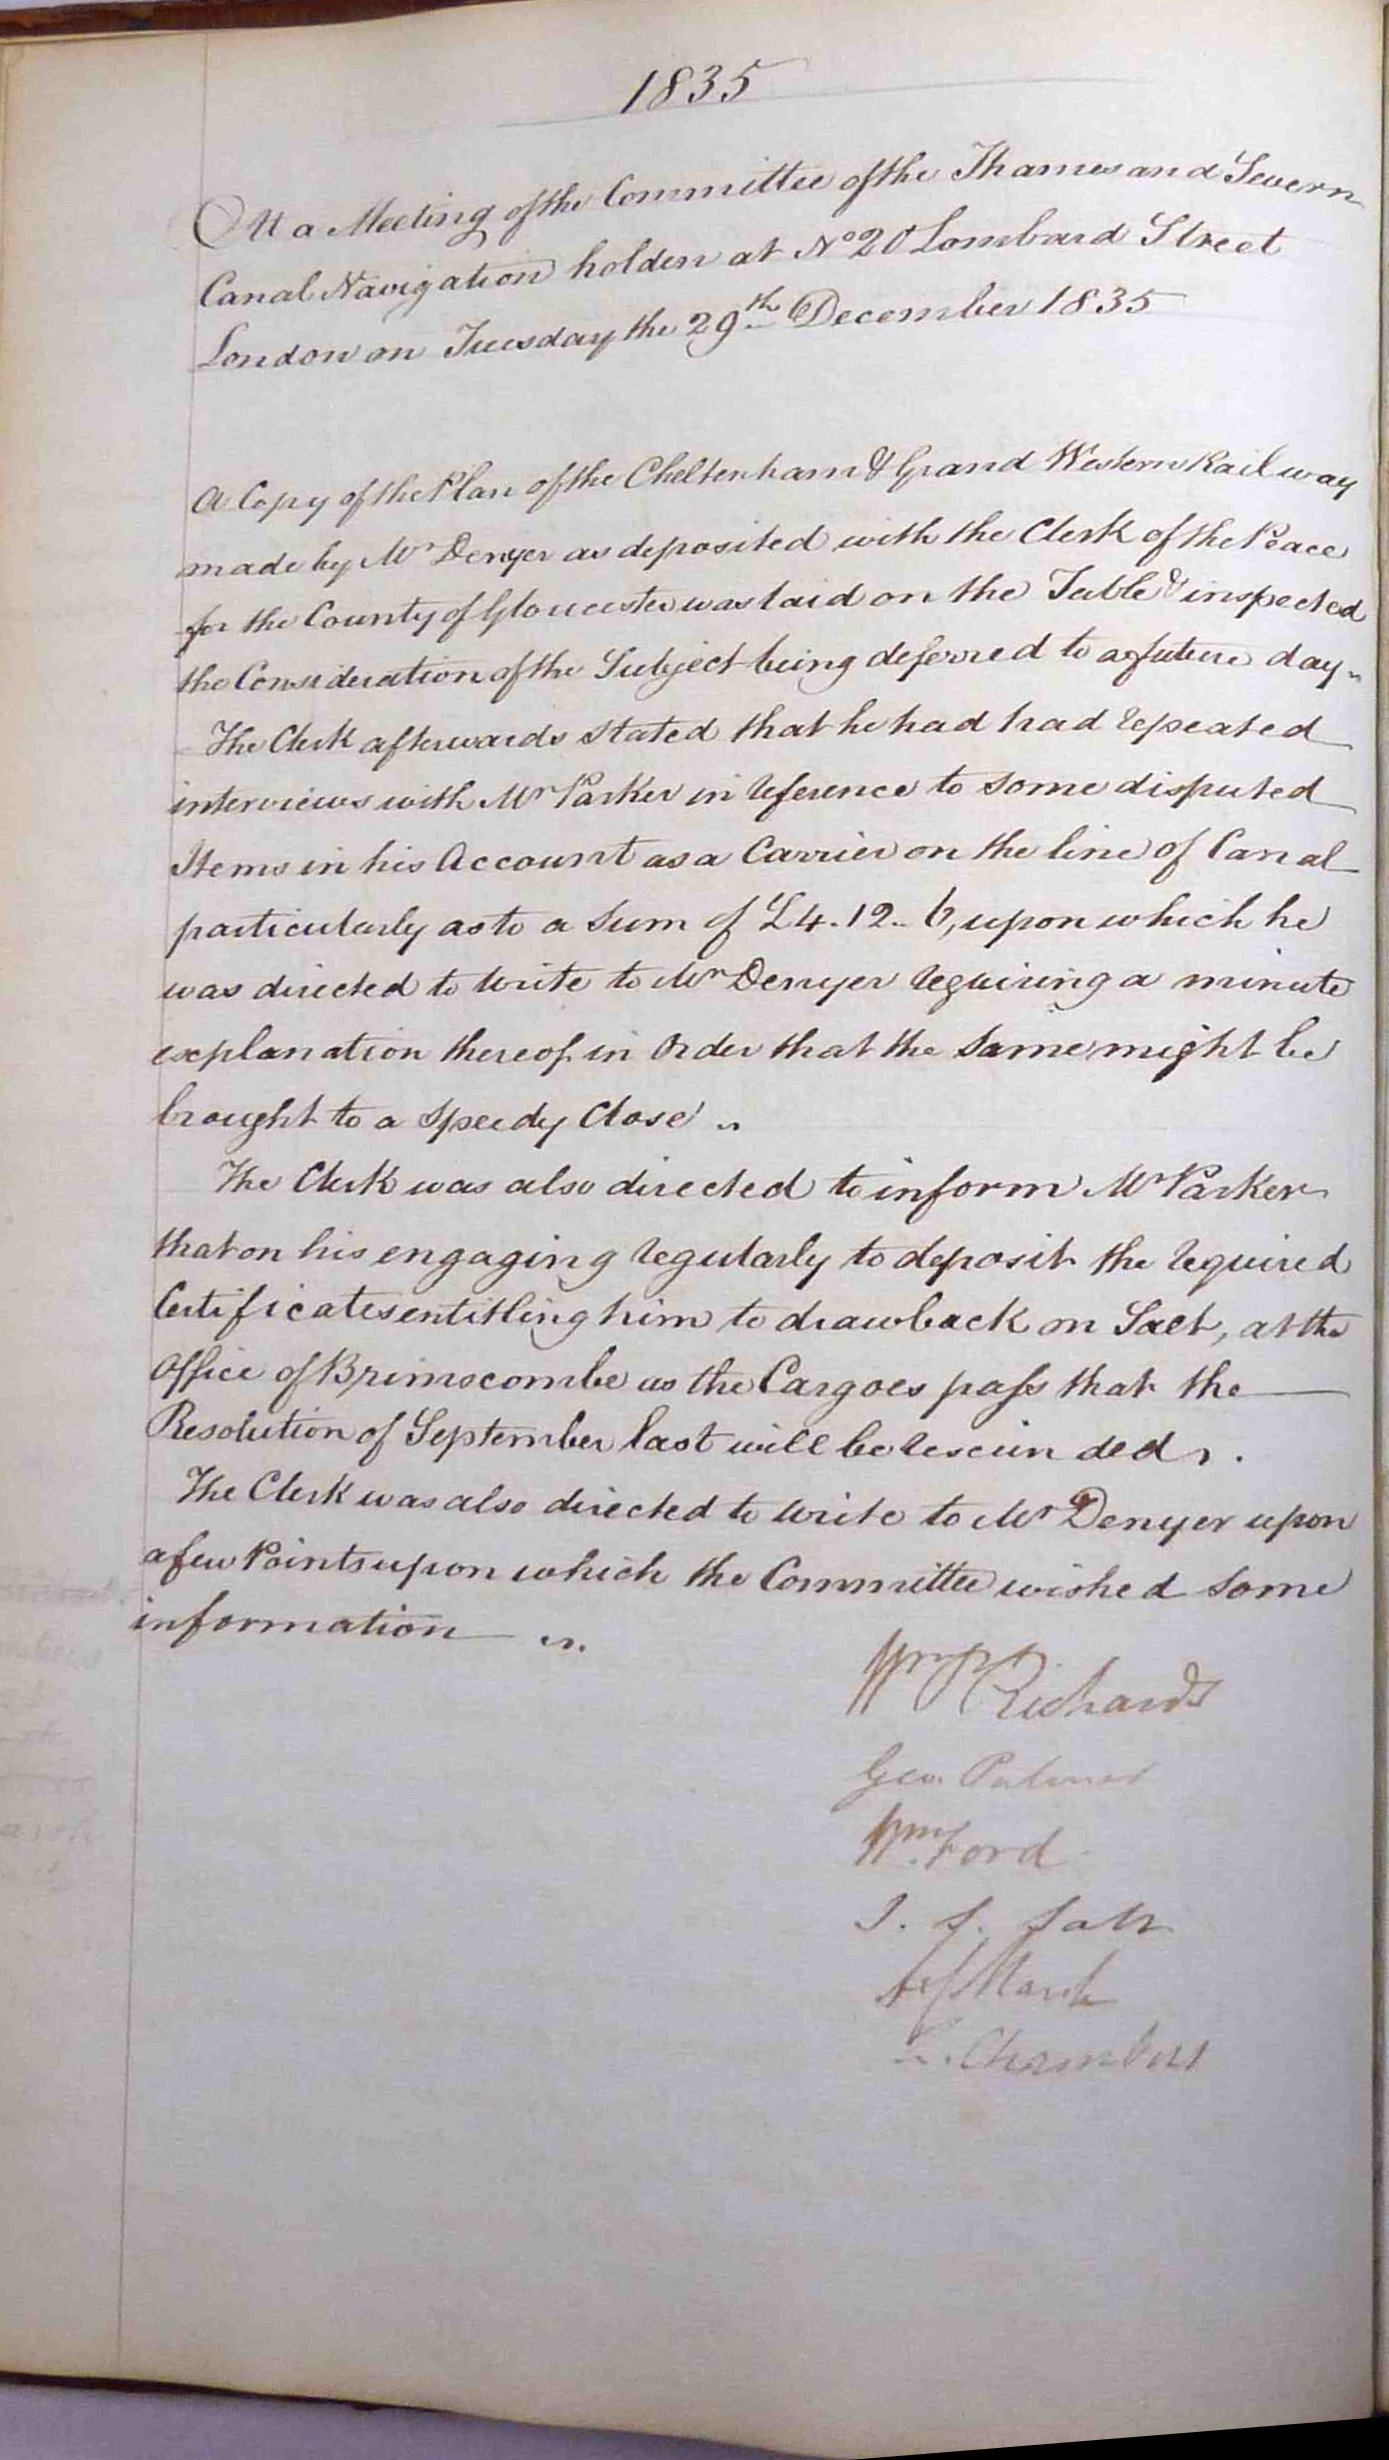 1835
At a Meeting of the Committee of the Thames and Severn
Canal Navigation holden at No 20 Lombard Street
London on Tuesday the 29th December 1835
A Copy of the Plan of the Cheltenham & Grand Western Railway
made by Mr Denyer as deposited with the Clerk of the Peace
for the County of Gloucester was laid on the Table & inspected
the Consideration of the Subject being deferred to a future day
The Clerk afterwards stated that he had had repeated
interviews with Mr Parker in reference to some disputed
Items in his Account as a Carrier on the line of Canal
particularly as to a Sum of £4.12.6, upon which he
was directed to write to Mr Denyer requiring a minute
explanation thereof in Order that the same might be
brought to a speedy Close
The Clerk was also directed to inform Mr Parker
that on his engaging regularly to deposit the required
Certificates entitling him to drawback on Salt, at the
Office of Brimscombe as the Cargoes pass that the
Resolution of September last will be rescinded.
The Clerk was also directed to write to Mr Denyer upon
a few Points upon which the Committee wished some
information
Richards
Geo. Palmer
Wm. Ford
J. S. Salt
Marsh
Chambers